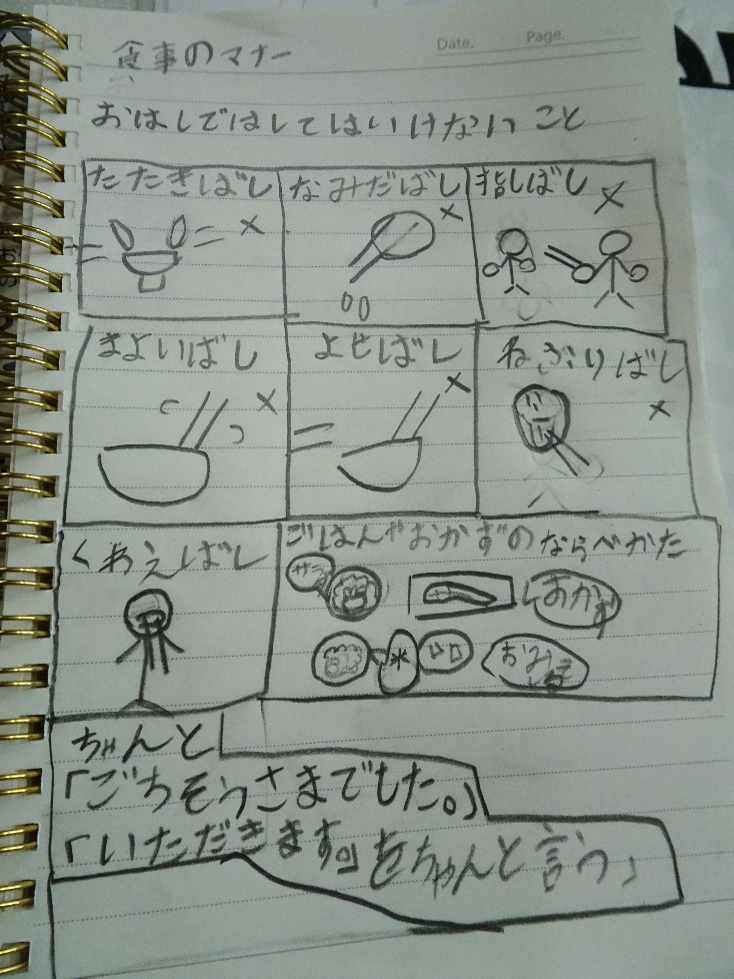 Date.
Page.
食事のマナー
おはしではしてはいけないこと
たたきばし
なみだばし
指しばし
まよいばし
よせばし
ねぶりばし
くわえばし
ごはんやおかずのならべかた
サラ
おかず
米
おみしる
ちゃんと
「ごちそうさまでした。」
「いただきます。」をちゃんと言う」